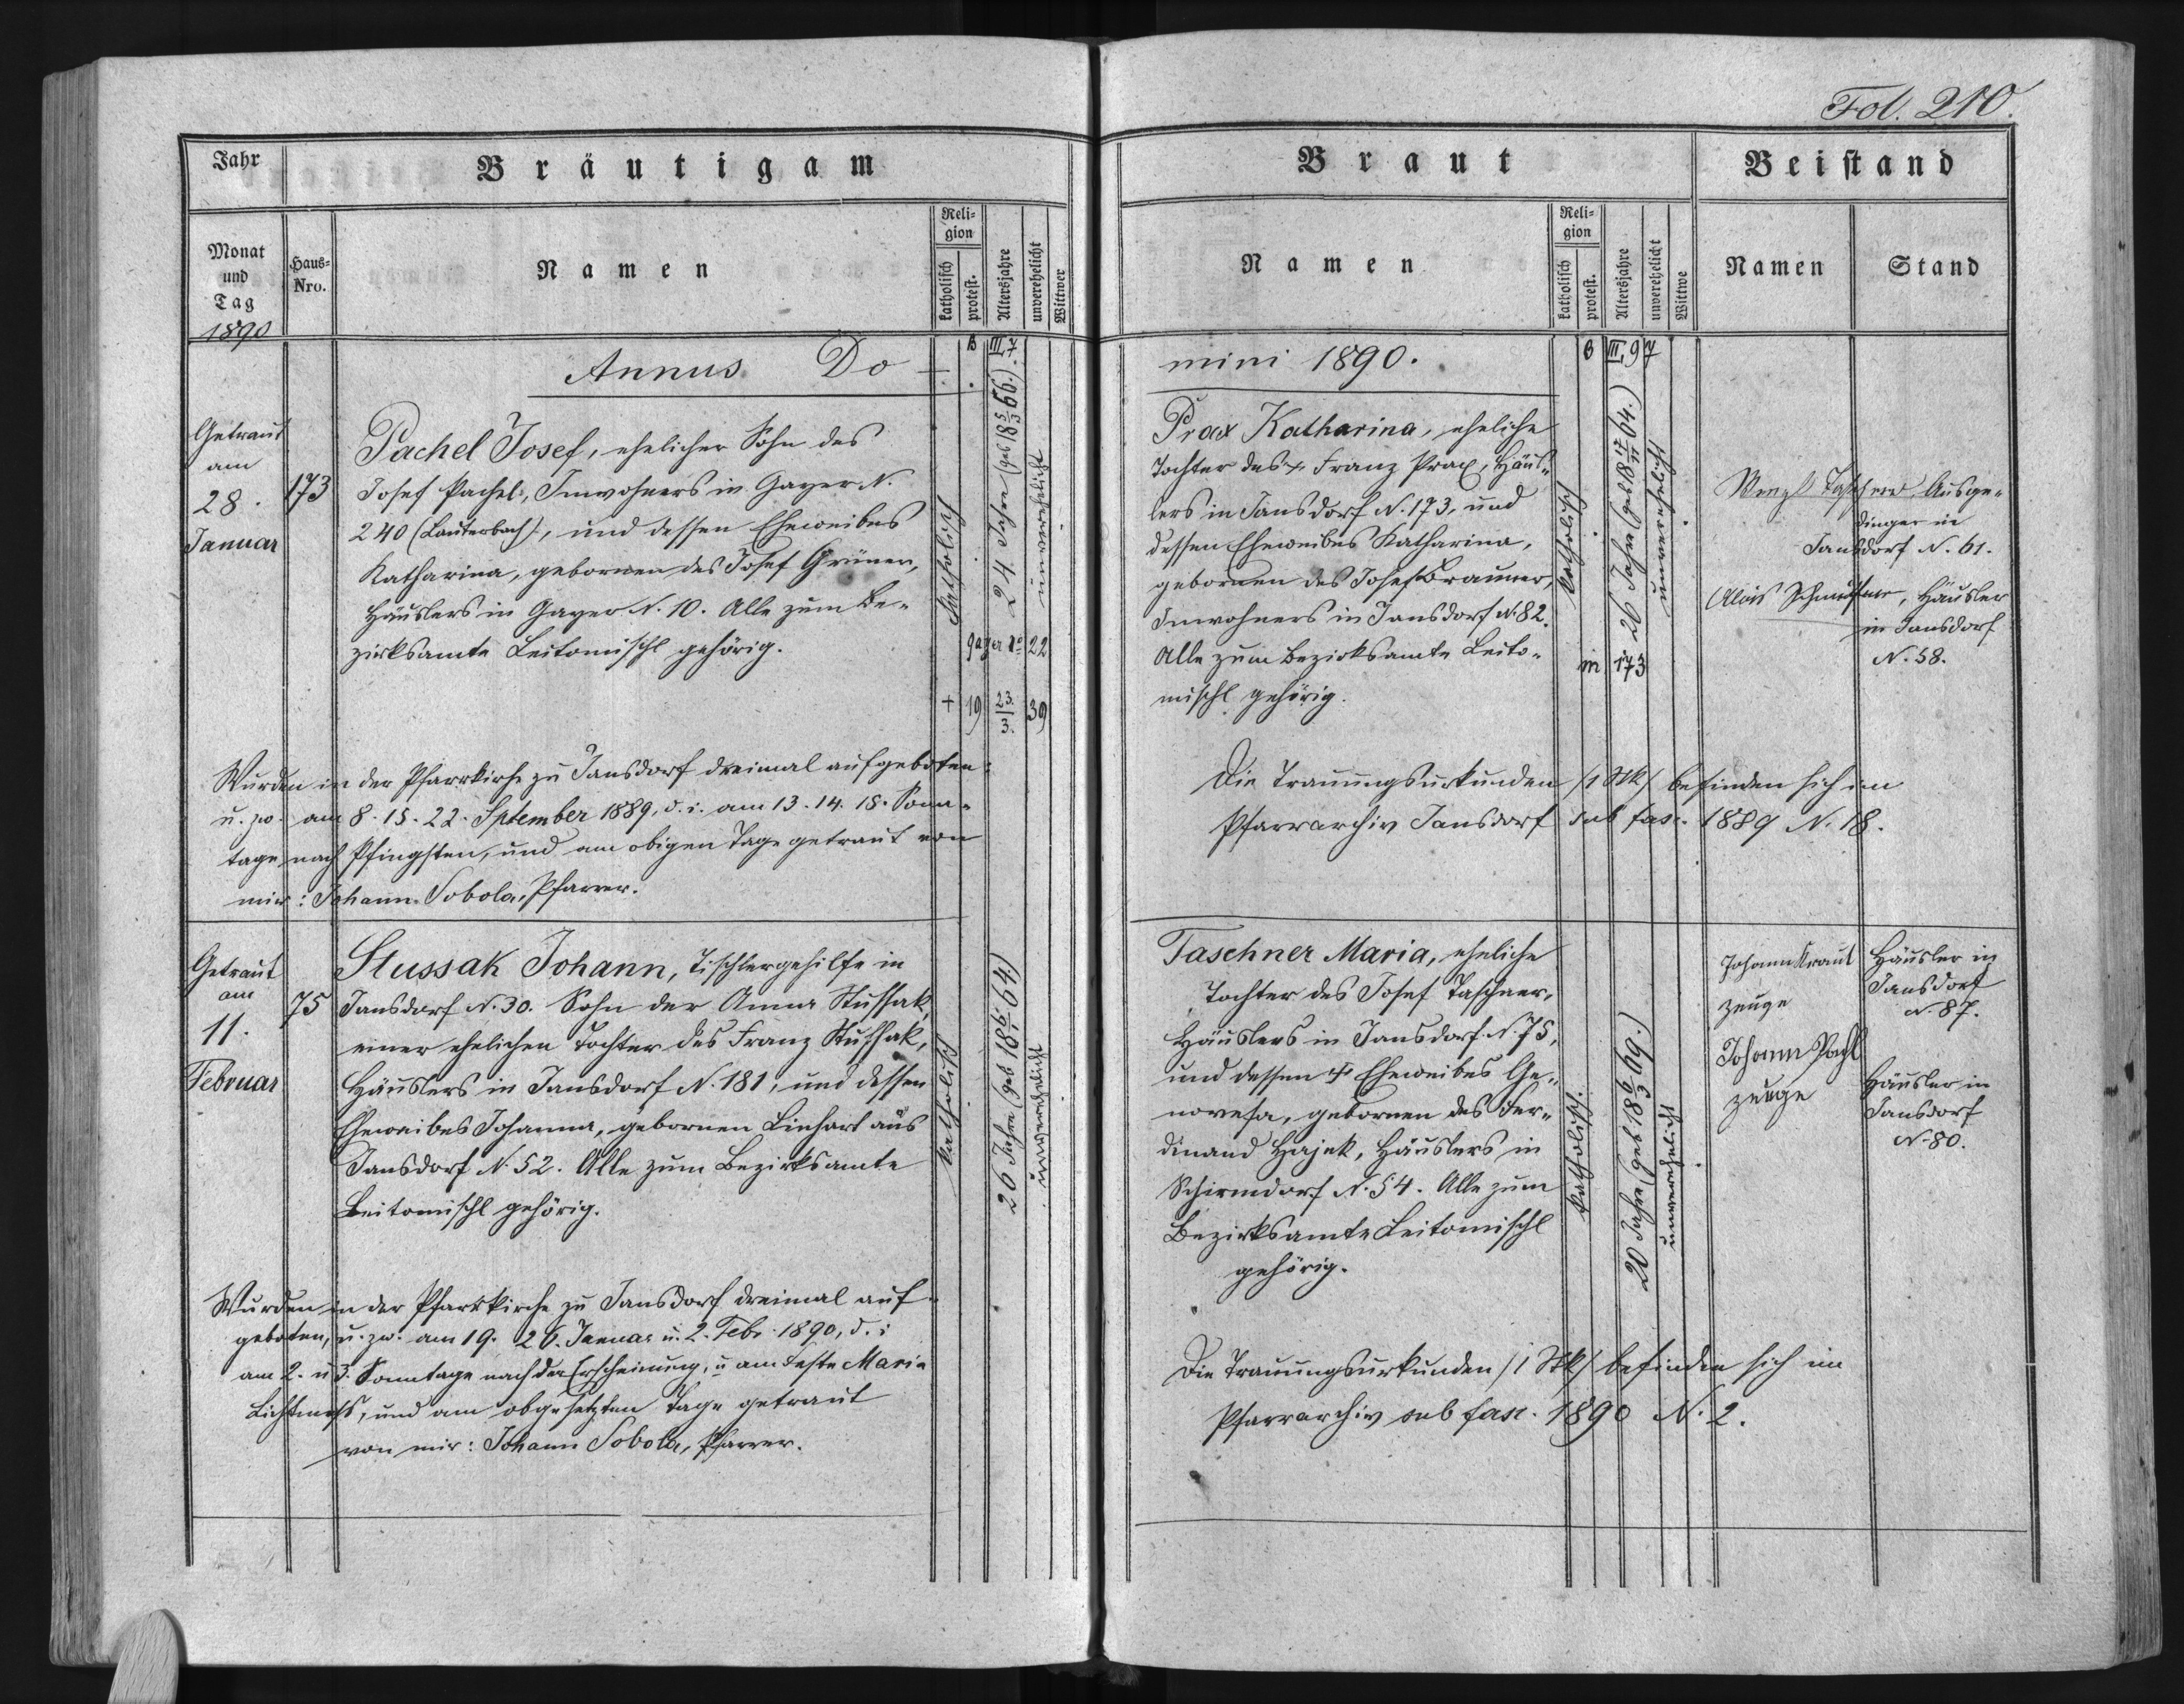 Fol. 210.
Jahr
Bräutigam
Monat
und
Tag
1890
Haus-
Nro.
Namen
Reli-
gion
katholisch
protest.
Altersjahre
unverehelicht
Wittwer
Braut
Beistand
Namen
Reli-
gion
katholisch
protest.
Altersjahre
unverehelicht
Wittwe
Namen
Stand
Annus Do-
B III, 7
mini 1890.
B III, 97
Getraut
am
28.
Januar
173
Pachel Josef, ehelicher Sohn des
Josef Pachel, Inwohners in Gayer N.
240 (Lauterbach), und dessen Eheweibes
Katharina, gebornen des Josef Grüner,
Häuslers in Gayer N. 10. Alle zum Be-
zirksamte Leitomischl gehörig.
katholisch
24 Jahre (geb 18 5/3 66.)
unverehelicht
gayer No 22
+ 19 23./3. 39
Prax Katharina, eheliche
Tochter des + Franz Prax, Häus-
lers in Jansdorf N. 173, und
dessen Eheweibes Katharina,
gebornen des Josef Brauner,
Inwohners in Jansdorf N. 82.
Alle zum Bezirksamte Leito-
mischl gehörig.
katholisch
26 Jahre (geb 18 17/11 64.)
unverehelicht
in 173
Wenzl Taschner, Ausge-
dinger in
Jansdorf N. 61.
Alois, Häusler
in Jansdorf
N. 58.
Wurden in der Pfarrkirche zu Jansdorf dreimal aufgeboten:
u. zw. am 8. 15. 22. September 1889, d. i. am 13. 14. 15. Sonn-
tage nach Pfingsten, und am obigen Tage getraut von
mir: Johann Sobola, Pfarrer.
Die Trauungsurkunden /1 Stk/ befinden sich im
Pfarrarchiv Jansdorf sub fasc. 1889 N. 18.
Getraut
am
11.
Februar
75
Stussak Johann, Tischlergehilfe in
Jansdorf N. 30. Sohn der Anna Stussak,
einer ehelichen Tochter des Franz Stussak,
Häuslers in Jansdorf N. 181, und dessen
Eheweibes Johanna, gebornen Linhart aus
Jansdorf N. 52. Alle zum Bezirksamte
Leitomischl gehörig.
katholisch
26 Jahre (geb 18 6/1 64.)
unverehelicht
Taschner Maria, eheliche
Tochter des Josef Taschner,
Häuslers in Jansdorf N. 75,
und dessen + Eheweibes Ge-
novefa, gebornen des Fer-
dinand Hajek, Häuslers in
Schirmdorf N. 54. Alle zum
Bezirksamte Leitomischl
gehörig.
katholisch.
20 Jahre (geb 18 6/3 69.)
unverehelicht
Johann Kraut
zeuge
Häusler in
Jansdorf
N. 87.
Johann Pachl
zeuge
Häusler in
Jansdorf
N. 80.
Wurden in der Pfarrkirche zu Jansdorf dreimal auf-
geboten, u. zw. am 19. 26. Januar u. 2. Febr. 1890, d. i.
am 2. u 3. Sonntage nach der Erscheinung, u am Feste Maria
Lichtmess, und am obgesetzten Tage getraut
von mir: Johann Sobola, Pfarrer.
Die Trauungsurkunden /1 Stk/ befinden sich im
Pfarrarchiv sub fasc. 1890 N. 2.